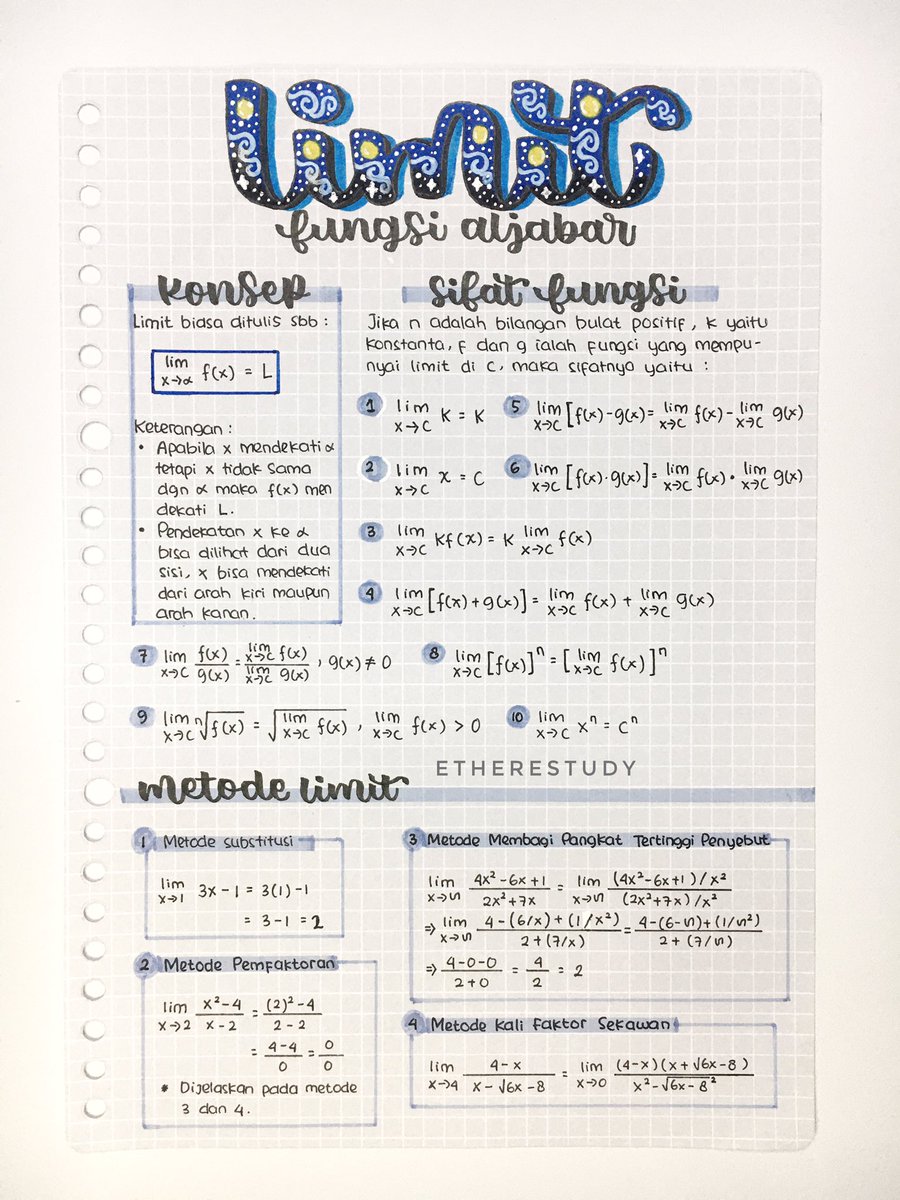 limit
fungsi aljabar
Konsep
Limit biasa ditulis sbb :
lim x→∝ f(x) = L
Keterangan :
• Apabila x mendekati ∝
tetapi x tidak sama
dgn ∝ maka f(x) men
dekati L.
• Pendekatan x ke ∝
bisa dilihat dari dua
sisi, x bisa mendekati
dari arah kiri maupun
arah kanan.
sifat fungsi
Jika n adalah bilangan bulat positif, k yaitu
konstanta, f dan g ialah fungsi yang mempu-
nyai limit di c, maka sifatnya yaitu :
1 lim x→c K = K
5 lim x→c [f(x)-g(x)= lim x→c f(x) - lim x→c g(x)
2 lim x→c x = c
6 lim x→c [f(x)·g(x)]= lim x→c f(x) · lim x→c g(x)
3 lim x→c Kf(x) = K lim x→c f(x)
4 lim x→c [f(x)+g(x)] = lim x→c f(x) + lim x→c g(x)
7 lim x→c f(x)/g(x) = lim x→c f(x) / lim x→c g(x) , g(x) ≠ 0
8 lim x→c [f(x)]ⁿ = [lim x→c f(x)]ⁿ
9 lim x→c ⁿ√f(x) = √lim x→c f(x) , lim x→c f(x) > 0
10 lim x→c xⁿ = cⁿ
ETHERESTUDY
metode limit
1 Metode substitusi
lim x→1 3x - 1 = 3(1) - 1
= 3 - 1 = 2
2 Metode Pemfaktoran
lim x→2 x²-4 / x-2 = (2)²-4 / 2-2
= 4-4 / 0 = 0/0
* Dijelaskan pada metode
3 dan 4.
3 Metode Membagi Pangkat Tertinggi Penyebut
lim x→∽ 4x²-6x+1 / 2x²+7x = lim x→∽ (4x²-6x+1)/x² / (2x²+7x)/x²
⇒ lim x→∽ 4-(6/x)+(1/x²) / 2+(7/x) = 4-(6-∽)+(1/∽²) / 2+(7/∽)
⇒ 4-0-0 / 2+0 = 4/2 = 2
4 Metode Kali Faktor Sekawan
lim x→4 4-x / x-√6x-8 = lim x→0 (4-x)(x+√6x-8) / x²-√6x-8²